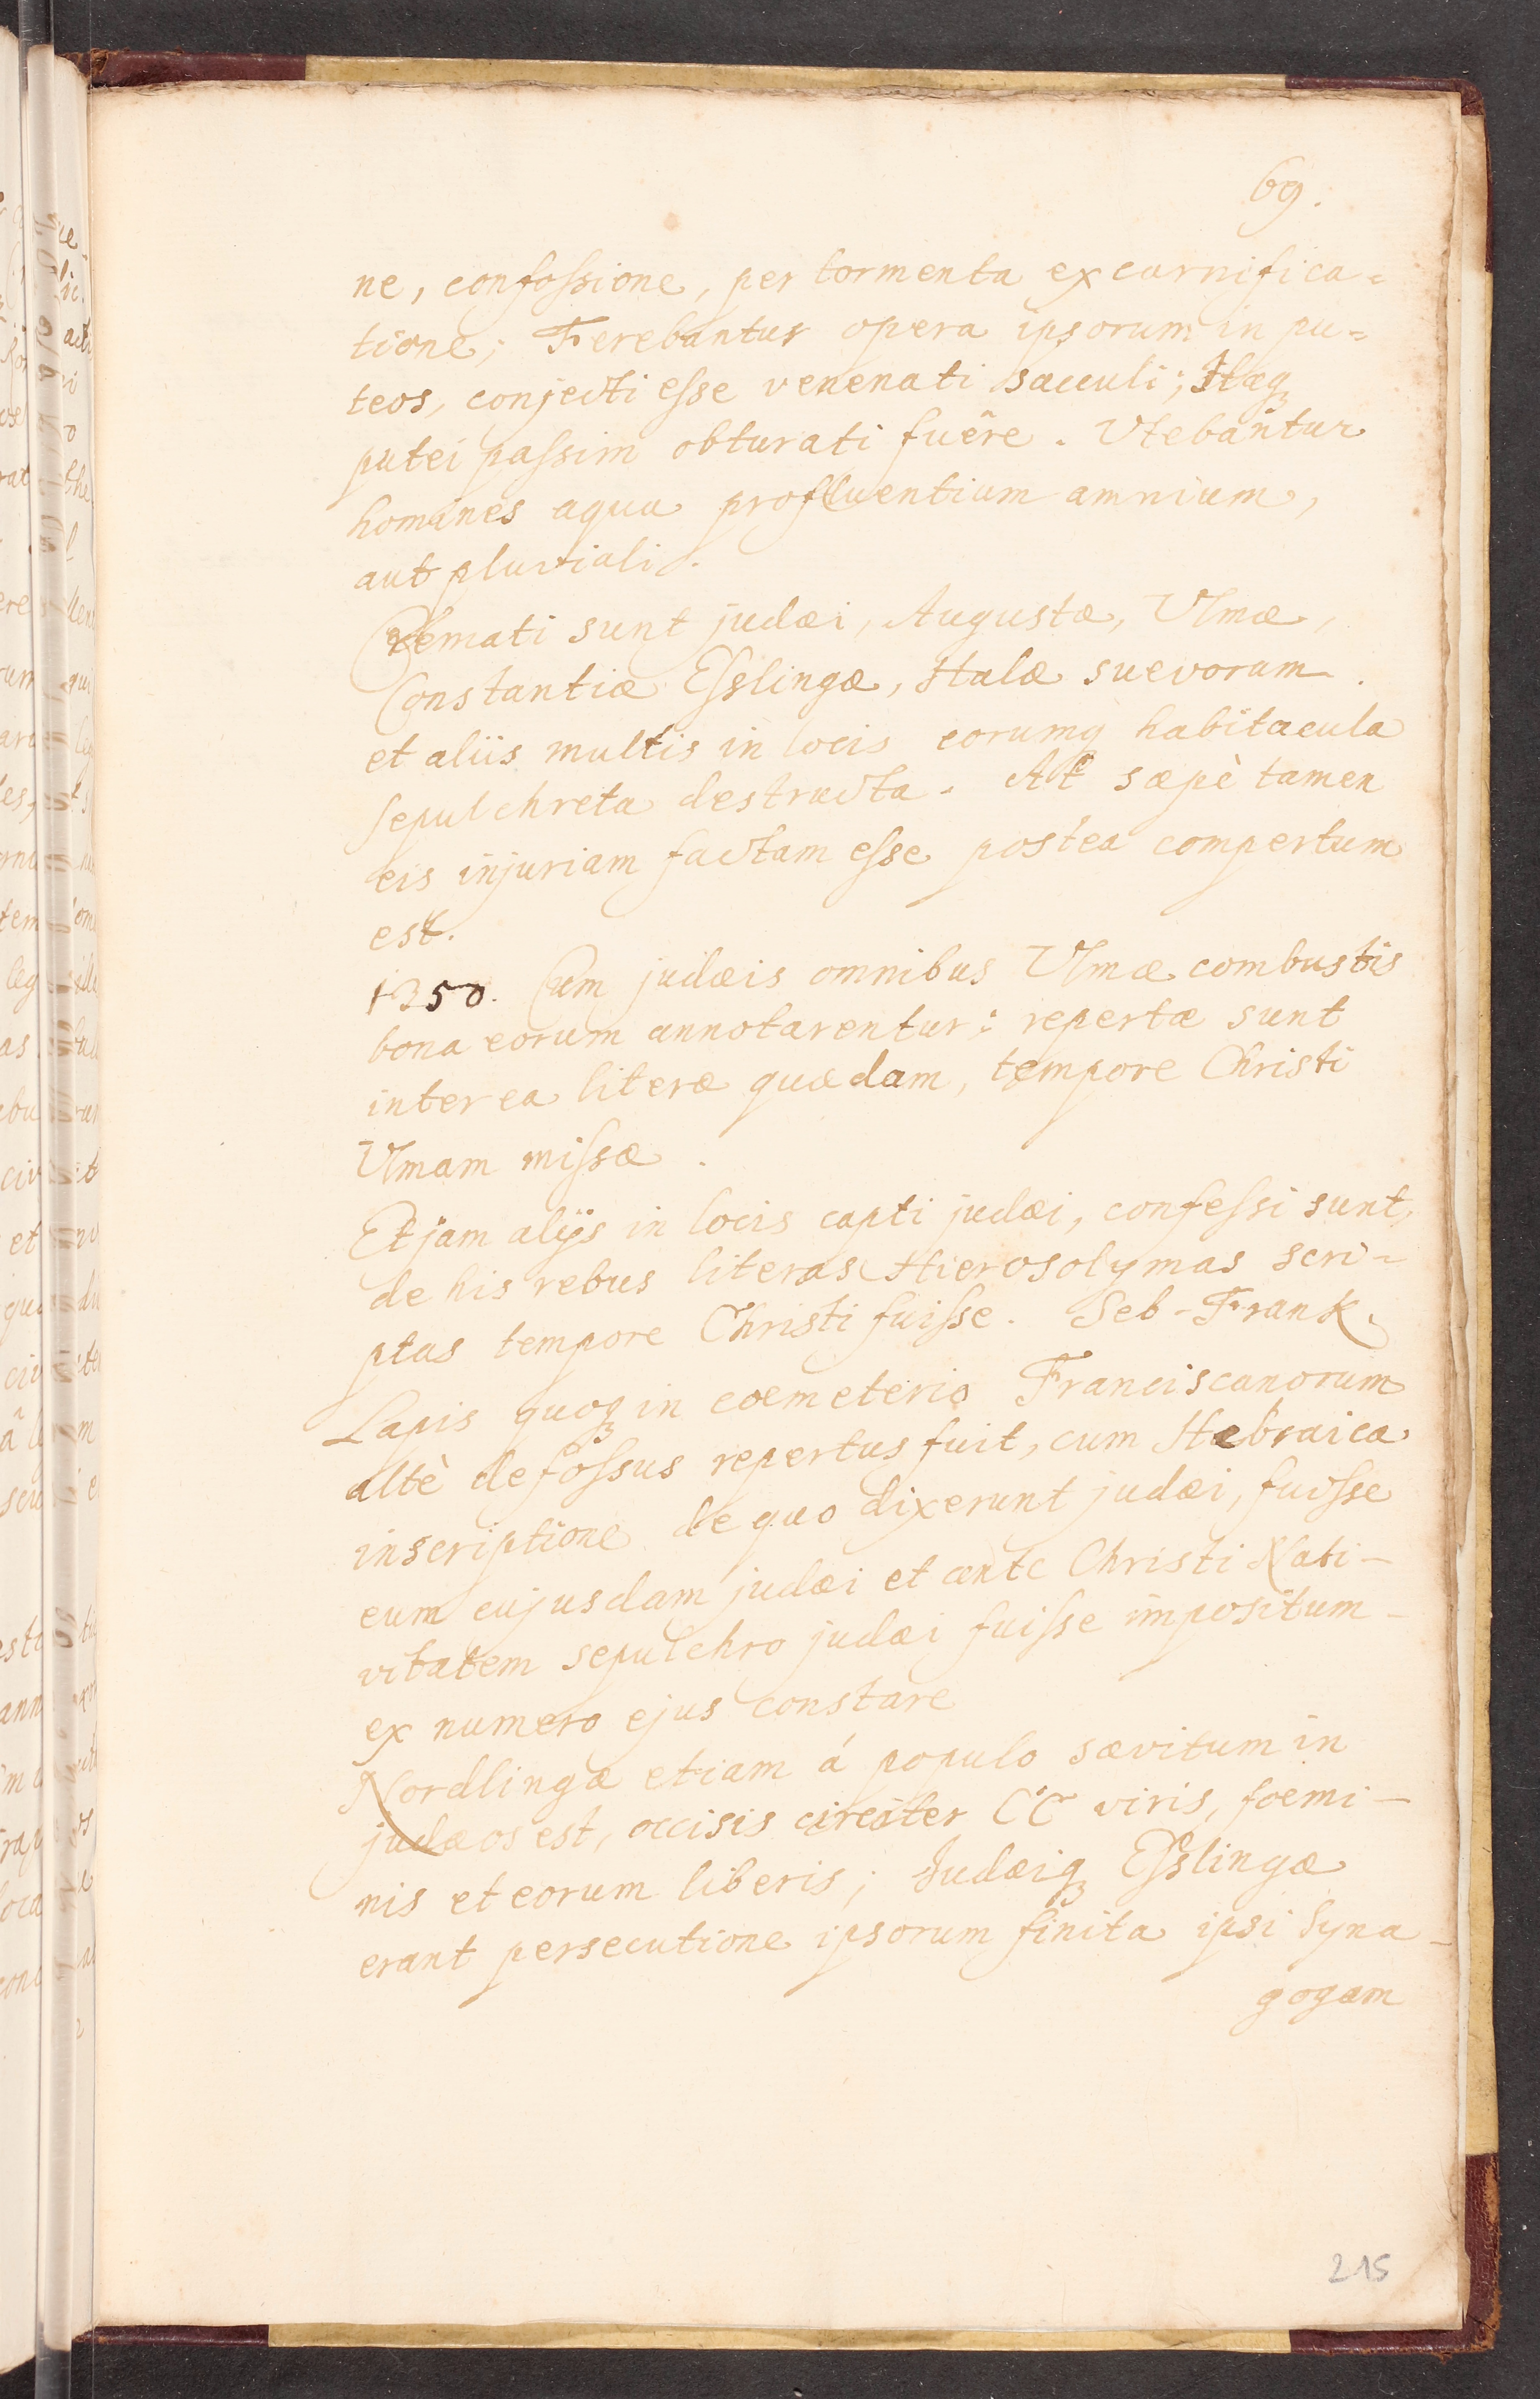 69.
ne, confoſsione, per tormenta excarnifica=
tione; Ferebantur opera ipsorum in pu=
teos, conjecti eſse venenati sacculi; Itaqꝫ
putei paſsim obturati fuêre. Vtebantur
homines aqua profluentium amnium,
aut pluviali.
Cremati sunt judæi, Augustæ, Vlmæ,
Constantiæ Eſslingæ, Halæ suevorum.
et aliis multis in locis eorumq habitacula
sepulchreta destructa. At sæpè tamen
eis injuriam factam eſse postea compertum
est.
1350. Cum judæis omnibus Vlmæ combustis
bona eorum annotarentur: repertæ sunt
inter ea literæ quædam, tempore Christi
Vlmam miſsæ.
Et jam alijs in locis capti judæi, confeſsi sunt,
de his rebus literas Hierosolymas scri-
ptas tempore Christi fuiſse. Seb-Frank.
Lapis quoqꝫ in coemeterio Franciscanorum
altè defoſsus repertus fuit, cum Hebraica
inscriptione de quo dixerunt judæi, fuiſse
eum cujusdam judæi et ante Christi Nati-
vitatem sepulchro judæi fuiſse impositum-
ex numero ejus constare
Nordlingæ etiam á populo sævitum in
judæos est, occisis circiter CC viris, foemi-
nis et eorum liberis; Judæiqꝫ Eſslingæ
erant persecutione ipsorum finita ipsi Syna-
gogam
215